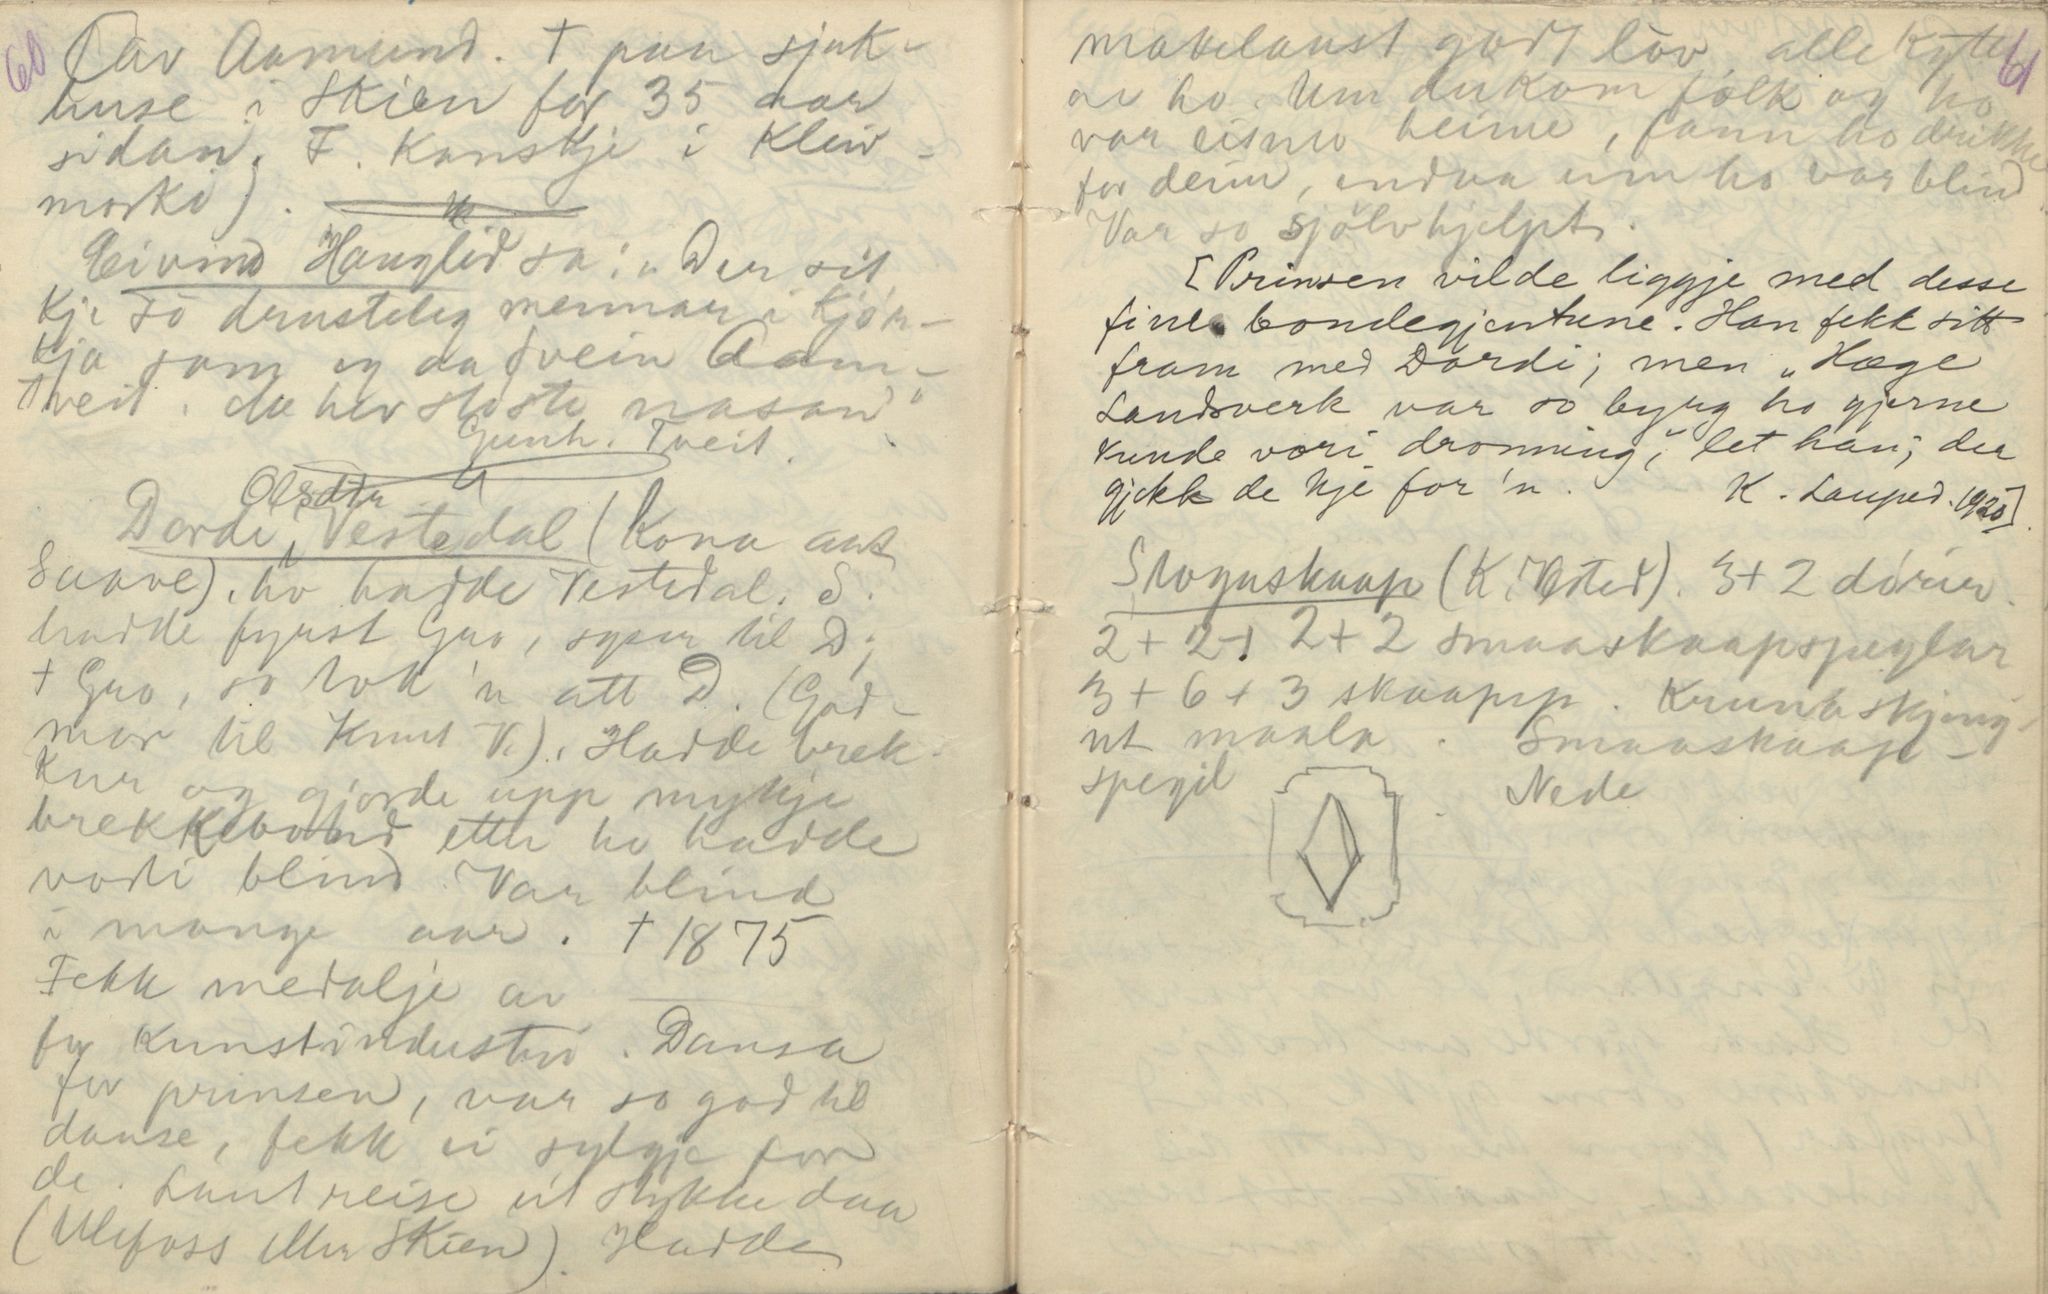 60
(Tav Aamund. † paa sjuk-
huse i Skien for 35 aar
sidan. F. Kanskje i Kleiv-
morki).
Eivind Hauglid sa: "Der sit
kje so drusteleg mennar i kjør-
kja som eg da Svein Aam-
tveit. da hev støste nasan"
Gunh. Tveit.
Olsdtr
Dordi Vestedal (Kona aat
Saave). ho hadde Vestedal. S.
hadde fyrst Gro, syser til D;
† Gro, so tok 'n att D. (God-
mor til Knut V.). Hadde brek-
kur og gjorde upp mykje
brekkeband etter ho hadde
vorti blind. Var blind
i mange aar. † 1875
Fekk medalje av
for kunstindustri. Dansa
for prinsen, var so god til
danse, fekk ei sylgje for
de. Laut reise eit stykke daa
(Ulefoss eller Skien). Hadde
61
makelaust godt lov alle
av ho. Um der kom folk og ho
var eismo heime, fann ho drikke
for deim, endaa um ho var blind
Var so sjølvhjelpt.
[Prinsen vilde liggje med desse
fine bondegjentune. Han fekk sitt
fram med Dordi; men "Hæge
Landsverk var so byrg ho gjerne
kunde vori dronning", let han; der
gjekk de kje for 'n. K. Lauped. 1920].
Stoguskaap (K. Vested). 3 + 2 dórir.
2 + 2 + 2 + 2 smaaskaapspeglar
3 + 6 + 3 skaapsp. Kruna skjeng
ut maala. Smaaskaap-
spegil Nede